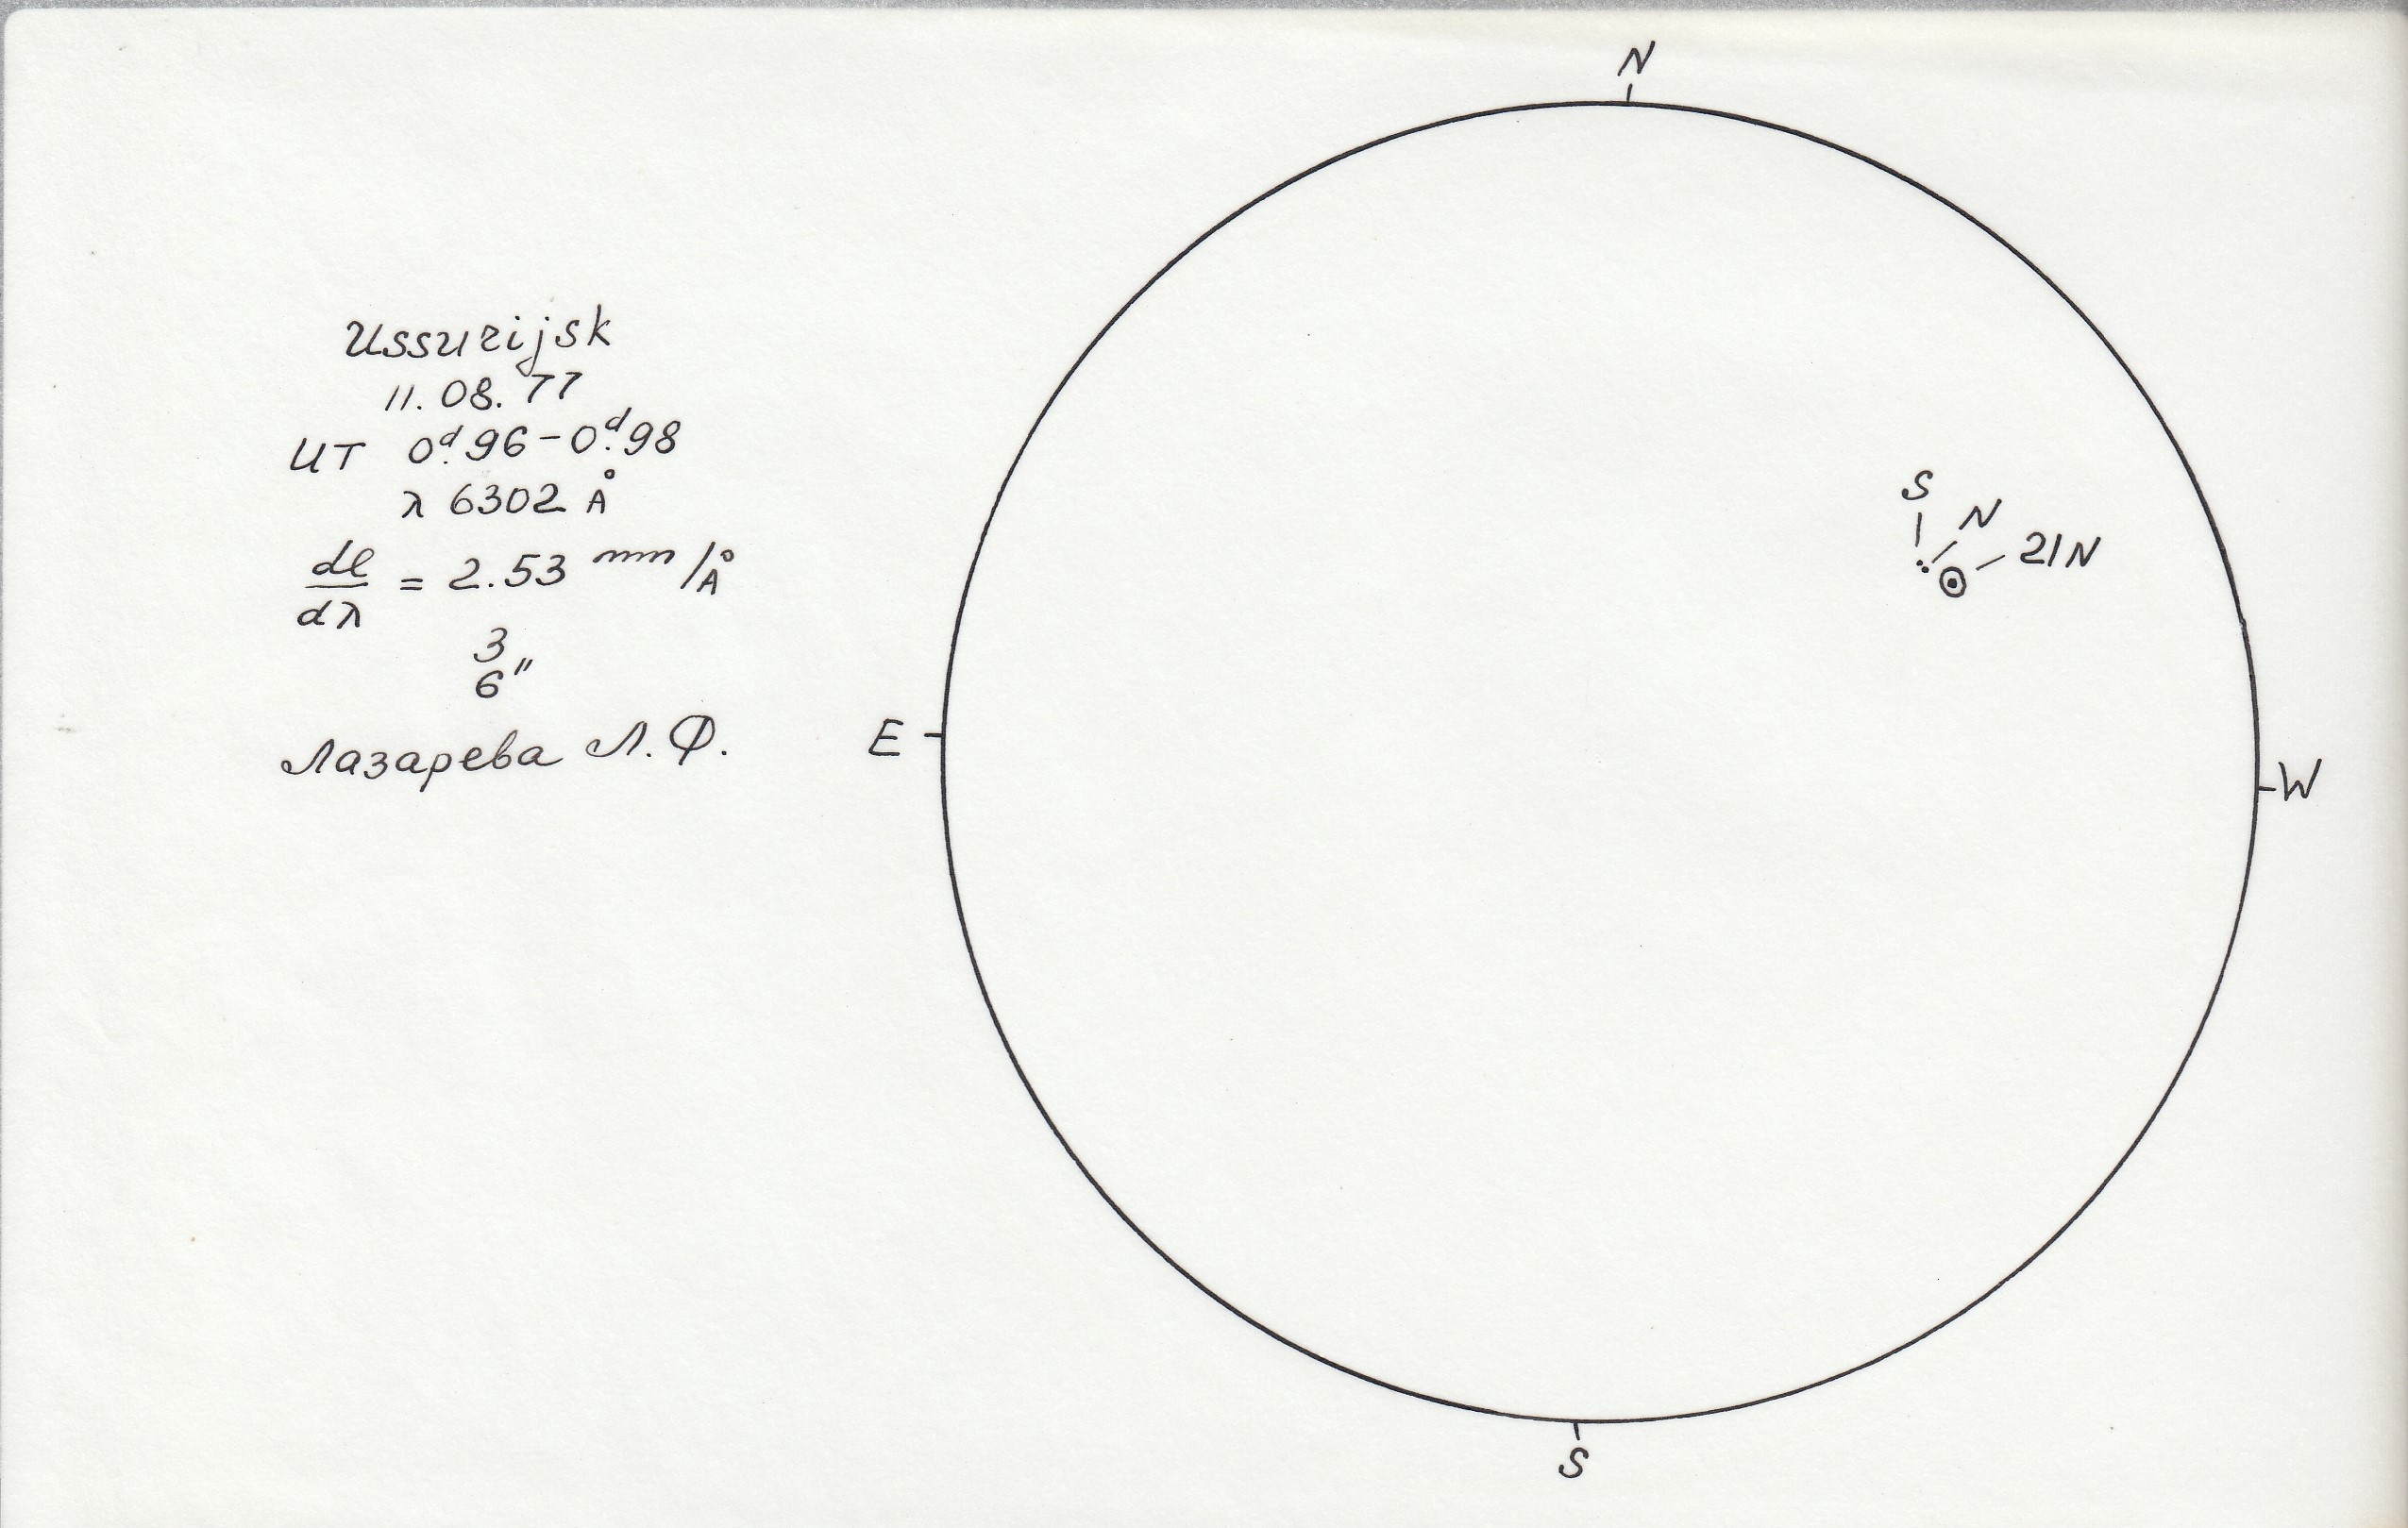 Ussurijsk
11.08.77
UT 0ᵈ.96–0ᵈ.98
λ 6302 Å
dl/dλ = 2.53 mm/Å
3
6"
Лазарева Л.Ф.
N
S
N
21N
E
W
S